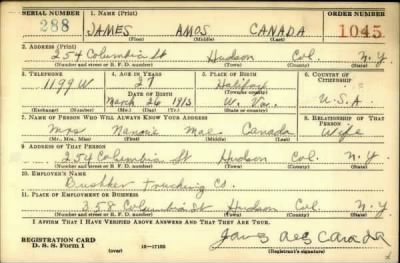 SERIAL NUMBER 1. NAME (Print) ORDER NUMBER
288 JAMES AMOS CANADA 1045
(First) (Middle) (Last)
2. ADDRESS (Print)
254 Columbia St Hudson Col. N.Y
(Number and street or R. F. D. number) (Town) (County) (State)
3. TELEPHONE 4. AGE IN YEARS 5. PLACE OF BIRTH 6. COUNTRY OF CITIZENSHIP
1199 W 27
DATE OF BIRTH (Town or county)
March 26 1913 W. Va. U.S.A.
(Exchange) (Number) (Mo.) (Day) (Yr.) (State or country)
7. NAME OF PERSON WHO WILL ALWAYS KNOW YOUR ADDRESS 8. RELATIONSHIP OF THAT PERSON
Mrs Mae Canada Wife
(Mr., Mrs., Miss) (First) (Middle) (Last)
9. ADDRESS OF THAT PERSON
254 Columbia St Hudson Col N.Y.
(Number and street or R. F. D. number) (Town) (County) (State)
10. EMPLOYER'S NAME
Trucking Co.
11. PLACE OF EMPLOYMENT OR BUSINESS
358 Columbia St Hudson Col N.Y
(Number and street or R. F. D. number) (Town) (County) (State)
I AFFIRM THAT I HAVE VERIFIED ABOVE ANSWERS AND THAT THEY ARE TRUE.
REGISTRATION CARD
D. S. S. Form 1 (over) 16—17105 (Registrant's signature)